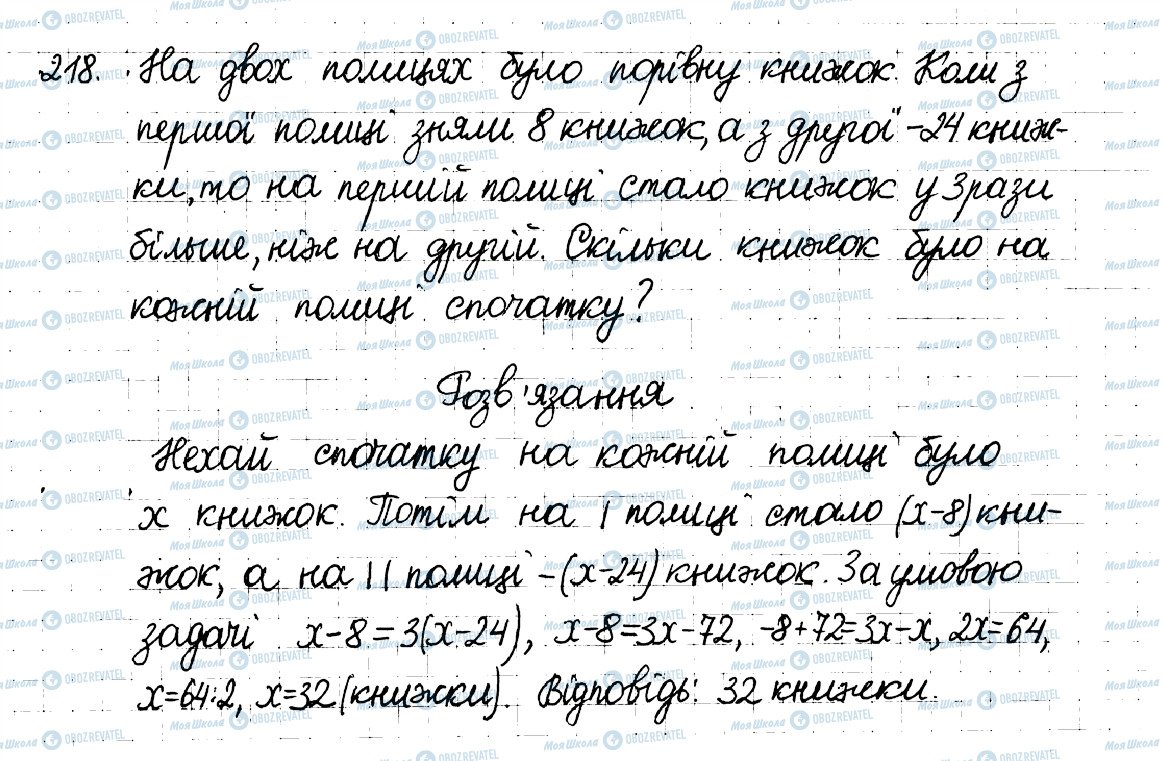 218. На двох полицях було порівну книжок. Коли з
першої полиці зняли 8 книжок, а з другої - 24 книж-
ки, то на першій полиці стало книжок у 3 рази
більше, ніж на другій. Скільки книжок було на
кожній полиці спочатку?
Розв'язання
Нехай спочатку на кожній полиці було
x книжок. Потім на I полиці стало (x-8) кни-
жок, а на II полиці - (x-24) книжок. За умовою
задачі x-8=3(x-24), x-8=3x-72, -8+72=3x-x, 2x=64,
x=64:2, x=32 (книжки). Відповідь: 32 книжки.